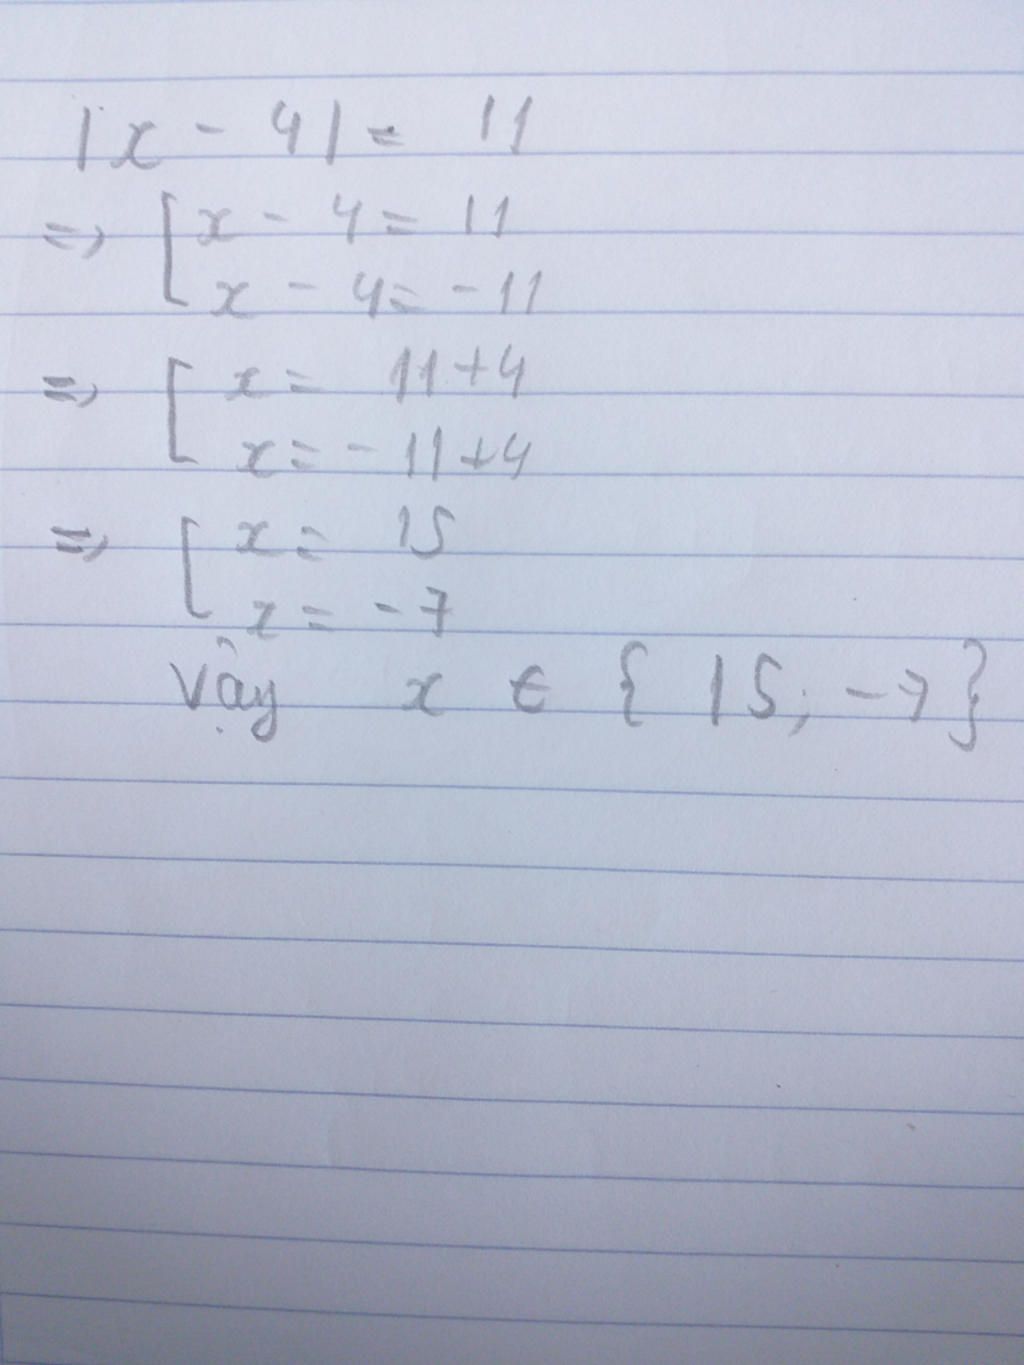 |x - 4| = 11
=> [ x - 4 = 11
x - 4 = -11
=> [ x = 11+4
x = -11+4
=> [ x = 15
x = -7
Vậy x ∈ { 15; -7}